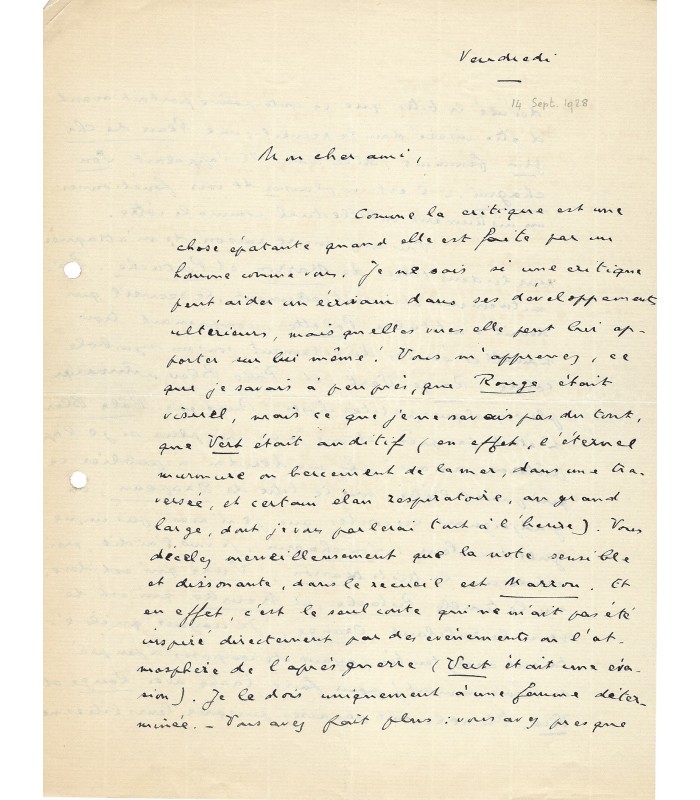 Vendredi
14 Sept. 1928
Mon cher ami,
Comme la critique est une
chose épatante quand elle est faite par un
homme comme vous. Je ne sais si une critique
peut aider un écrivain dans ses développements
ultérieurs, mais quelles vues elle peut lui ap-
porter sur lui même ! Vous m'apprenez, ce
que je savais à peu près, que Rouge était
visuel, mais ce que je ne savais pas du tout,
que Vert était auditif (en effet, l'éternel
murmure ou bercement de la mer, dans une tra-
versée, et certain élan respiratoire, au grand
large, dont je vous parlerai tout à l'heure). Vous
décelez merveilleusement que la note sensible
et dissonante, dans le recueil est Marron. Et
en effet, c'est le seul conte qui ne m'ait pas été
inspiré directement par des evénements ou l'at-
mosphère de l'après guerre (Vert était une éva-
sion). Je le dois uniquement à une femme déter-
minée. – Vous avez fait plus : vous avez presque